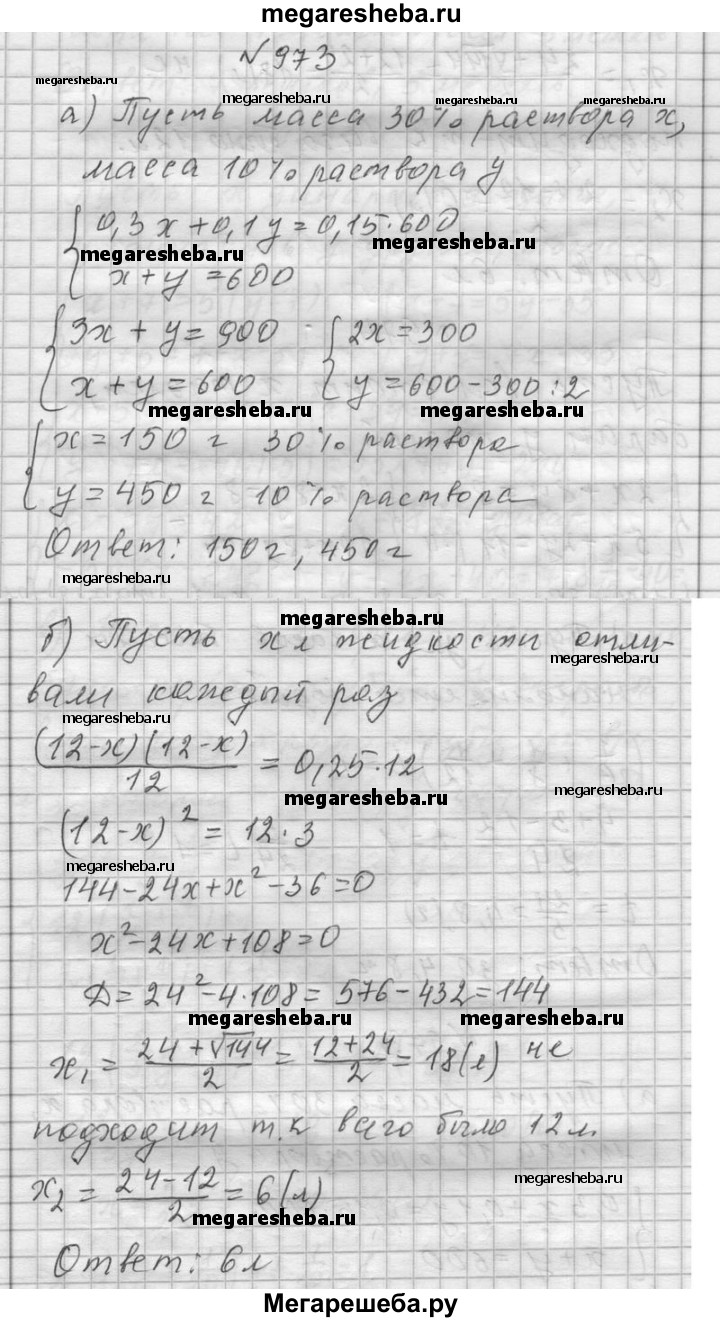 megaresheba.ru
№973
megaresheba.ru megaresheba.ru megaresheba.ru
а) Пусть масса 30% раствора x,
масса 10% раствора y
0,3x+0,1y=0,15·600
megaresheba.ru megaresheba.ru
x+y=600
3x+y=900 2x=300
x+y=600 y=600-300:2
megaresheba.ru megaresheba.ru
x=150 г 30% раствора
y=450 г 10% раствора
Ответ: 150г, 450г
megaresheba.ru
megaresheba.ru
б) Пусть x л жидкости отли-
megaresheba.ru
вали каждый раз
megaresheba.ru
(12-x)(12-x)/12 = 0,25·12
megaresheba.ru megaresheba.ru
(12-x)² = 12·3
megaresheba.ru
144-24x+x²-36=0
x²-24x+108=0
Д=24²-4·108=576-432=144
megaresheba.ru megaresheba.ru
x₁ = (24+√144)/2 = (12+24)/2 = 18(л) не
подходит т.к всего было 12л.
x₂ = (24-12)/2 = 6(л)
megaresheba.ru
megaresheba.ru
Ответ: 6л
Мегарешеба.ру